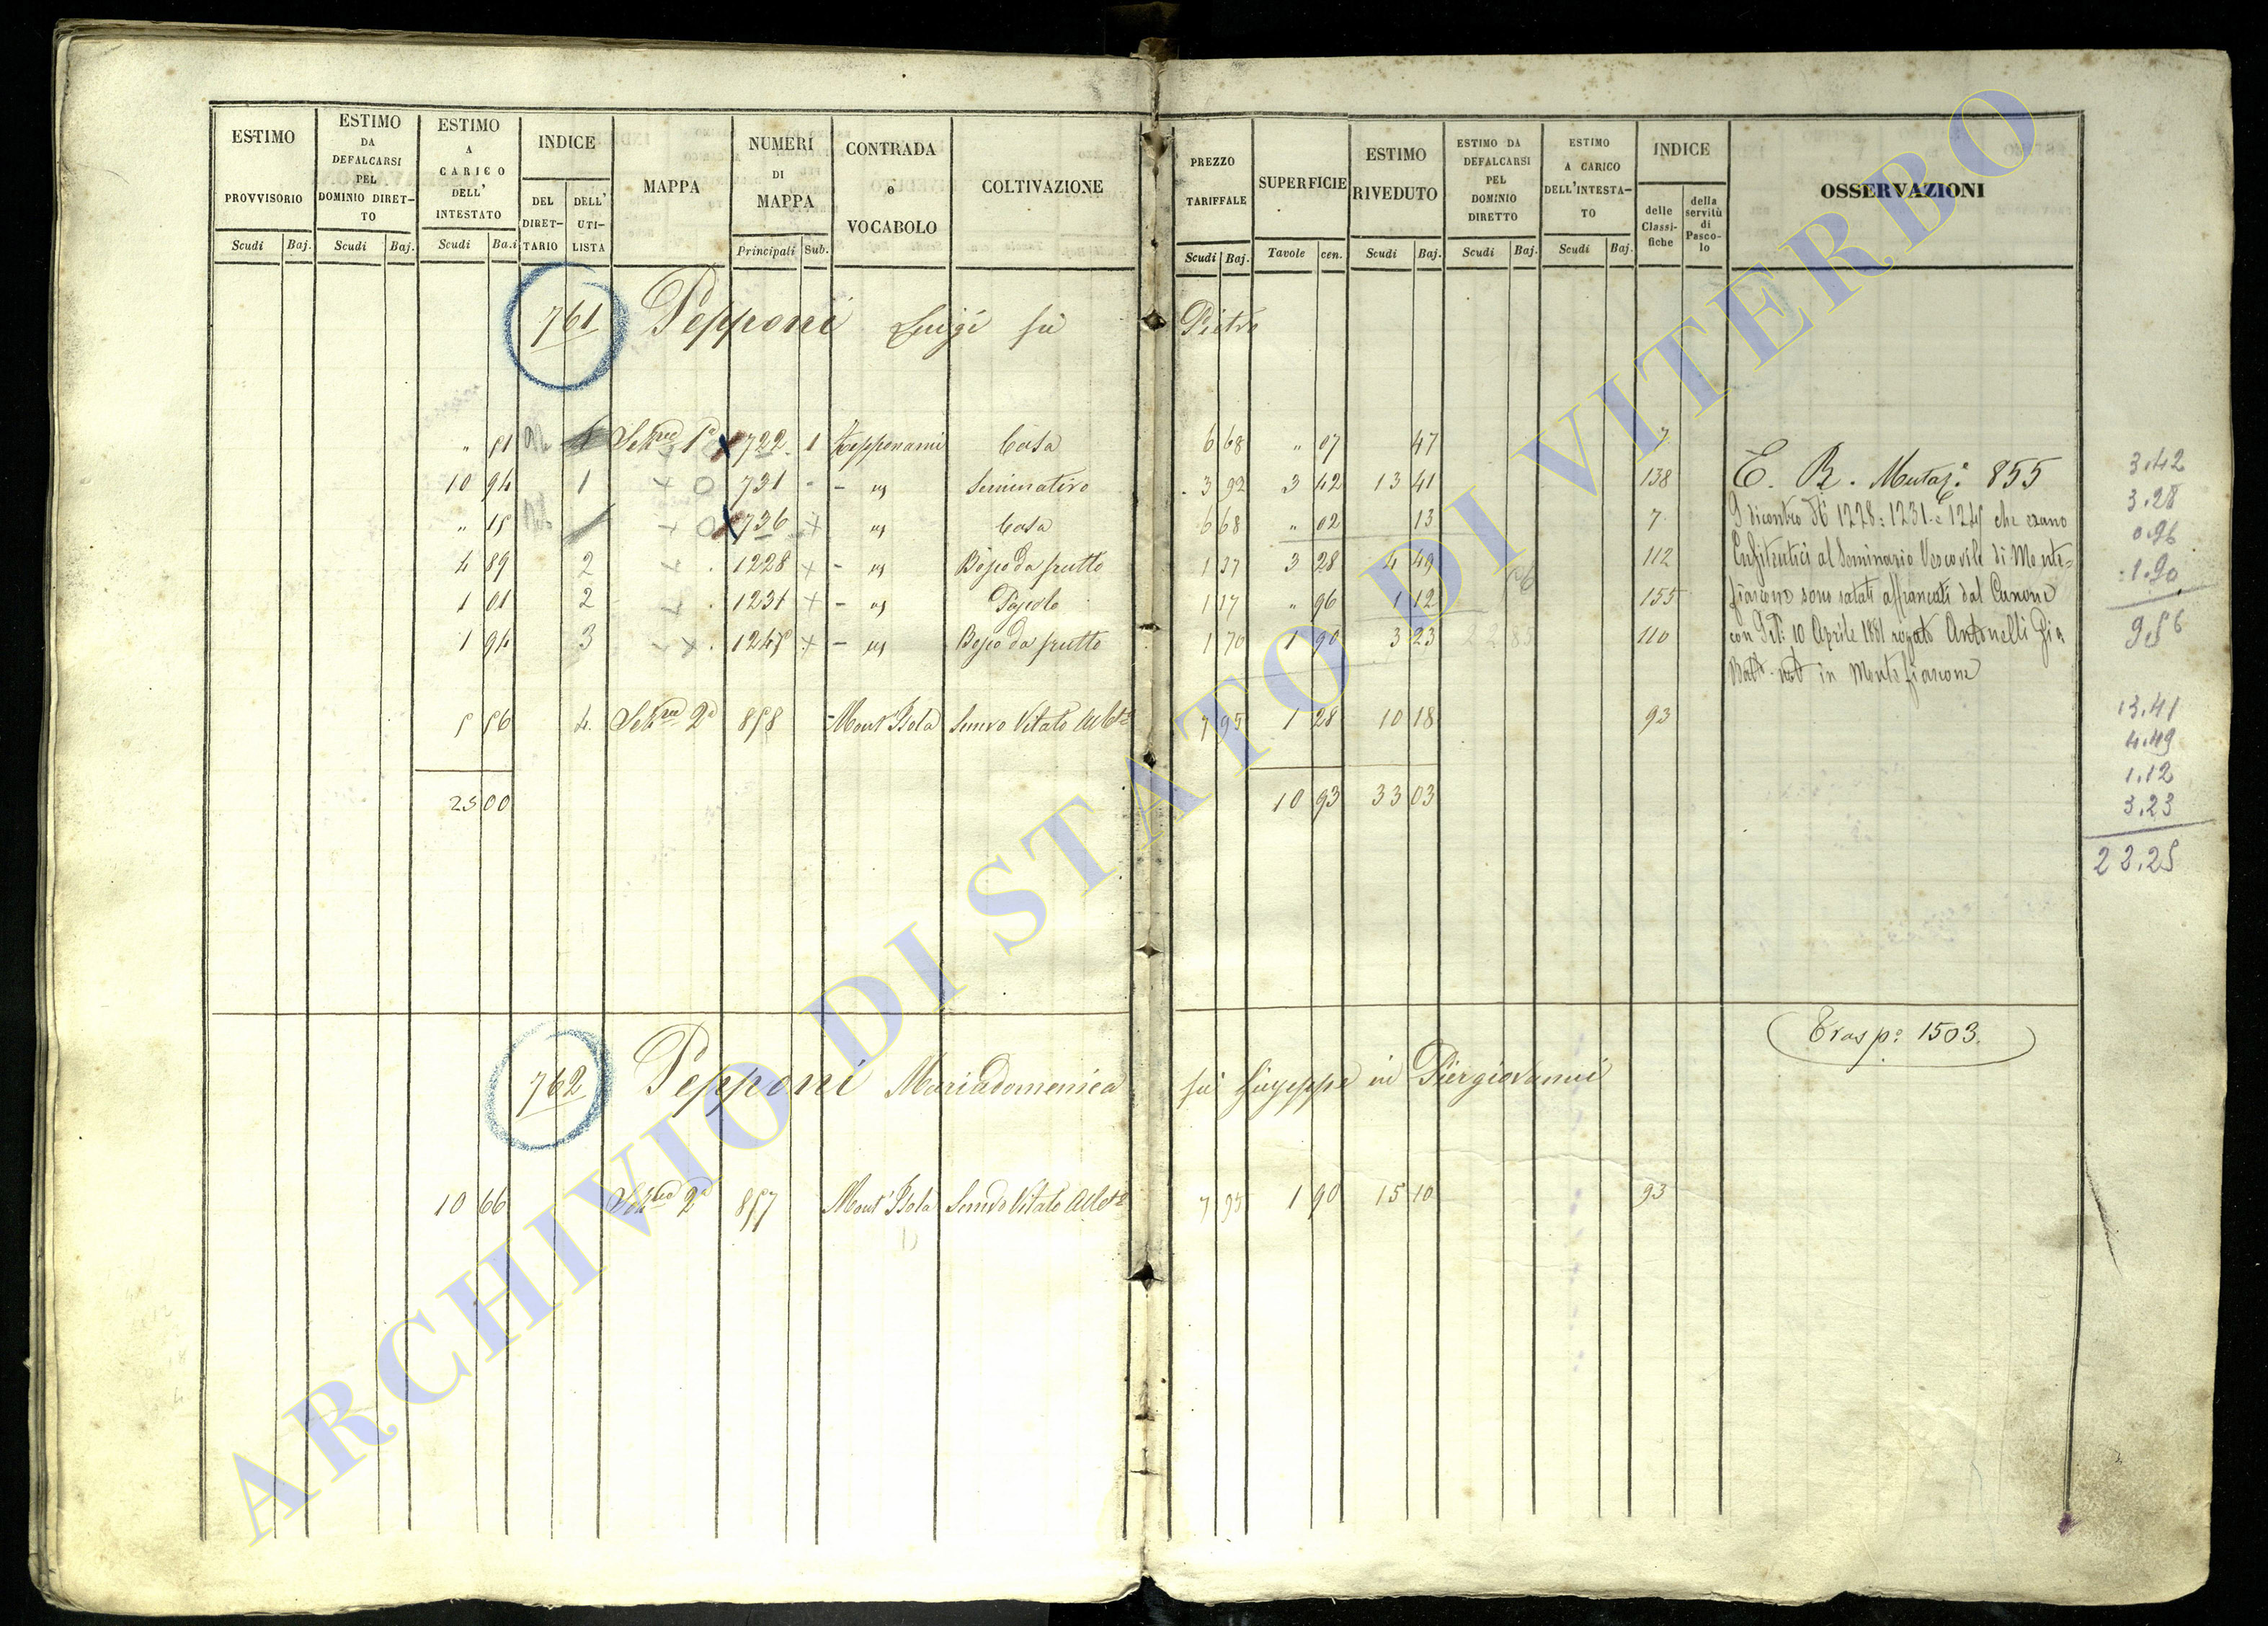 ESTIMO PROVVISORIO Scudi Baj.
ESTIMO DA DEFALCARSI PEL DOMINIO DIRET-TO Scudi Baj.
ESTIMO A CARICO DELL' INTESTATO Scudi Ba.i
INDICE DEL DIRET-TARIO DELL' UTI-LISTA
MAPPA
NUMERI DI MAPPA Principali Sub.
CONTRADA o VOCABOLO
COLTIVAZIONE
PREZZO TARIFFALE Scudi Baj.
SUPERFICIE Tavole cen.
ESTIMO RIVEDUTO Scudi Baj.
ESTIMO DA DEFALCARSI PEL DOMINIO DIRETTO Scudi Baj.
ESTIMO A CARICO DELL'INTESTA-TO Scudi Baj.
INDICE delle Classi-fiche della servitù di Pasco-lo
OSSERVAZIONI
761 Pepponi Luigi fù Pietro
" 51 Sezne 1a 722 1 Casa 6 68 " 07 47 7
10 94 1 731 - " Seminativo 3 92 3 42 13 41 138
" 15 736 " Casa 6 68 " 02 13 7
4 89 2 1228 - " Bosco da frutto 1 37 3 28 4 49 112
1 01 2 1231 - " Pascolo 1 17 " 96 1 12 155
1 94 3 1245 - " Bosco da frutto 1 70 1 90 3 23 110
5 56 4 Sezne 2a 858 Mont'Isola Semvo Vitato 7 95 1 28 10 18 93
25 00 10 93 33 03
E. R. Mutaz.e 855
dicontro Ni 1228: 1231 e 1245 che erano
Enfiteutici al Seminario Vescovile di Monte=
fiascone sono stati affrancati dal Canone
con 10 Aprile 1881 rogato Antonelli Gio
Batt. not in Montefiascone
3.42
3.28
0.96
1.90
9.56
13.41
4.49
1.12
3.23
22.25
Trasp: 1503.
762 Pepponi Mariadomenica fù Giuseppe in Piergiovanni
10 66 Sezne 2a 857 Mont'Isola Semvo Vitato 7 95 1 90 15 10 93
ARCHIVIO DI STATO DI VITERBO